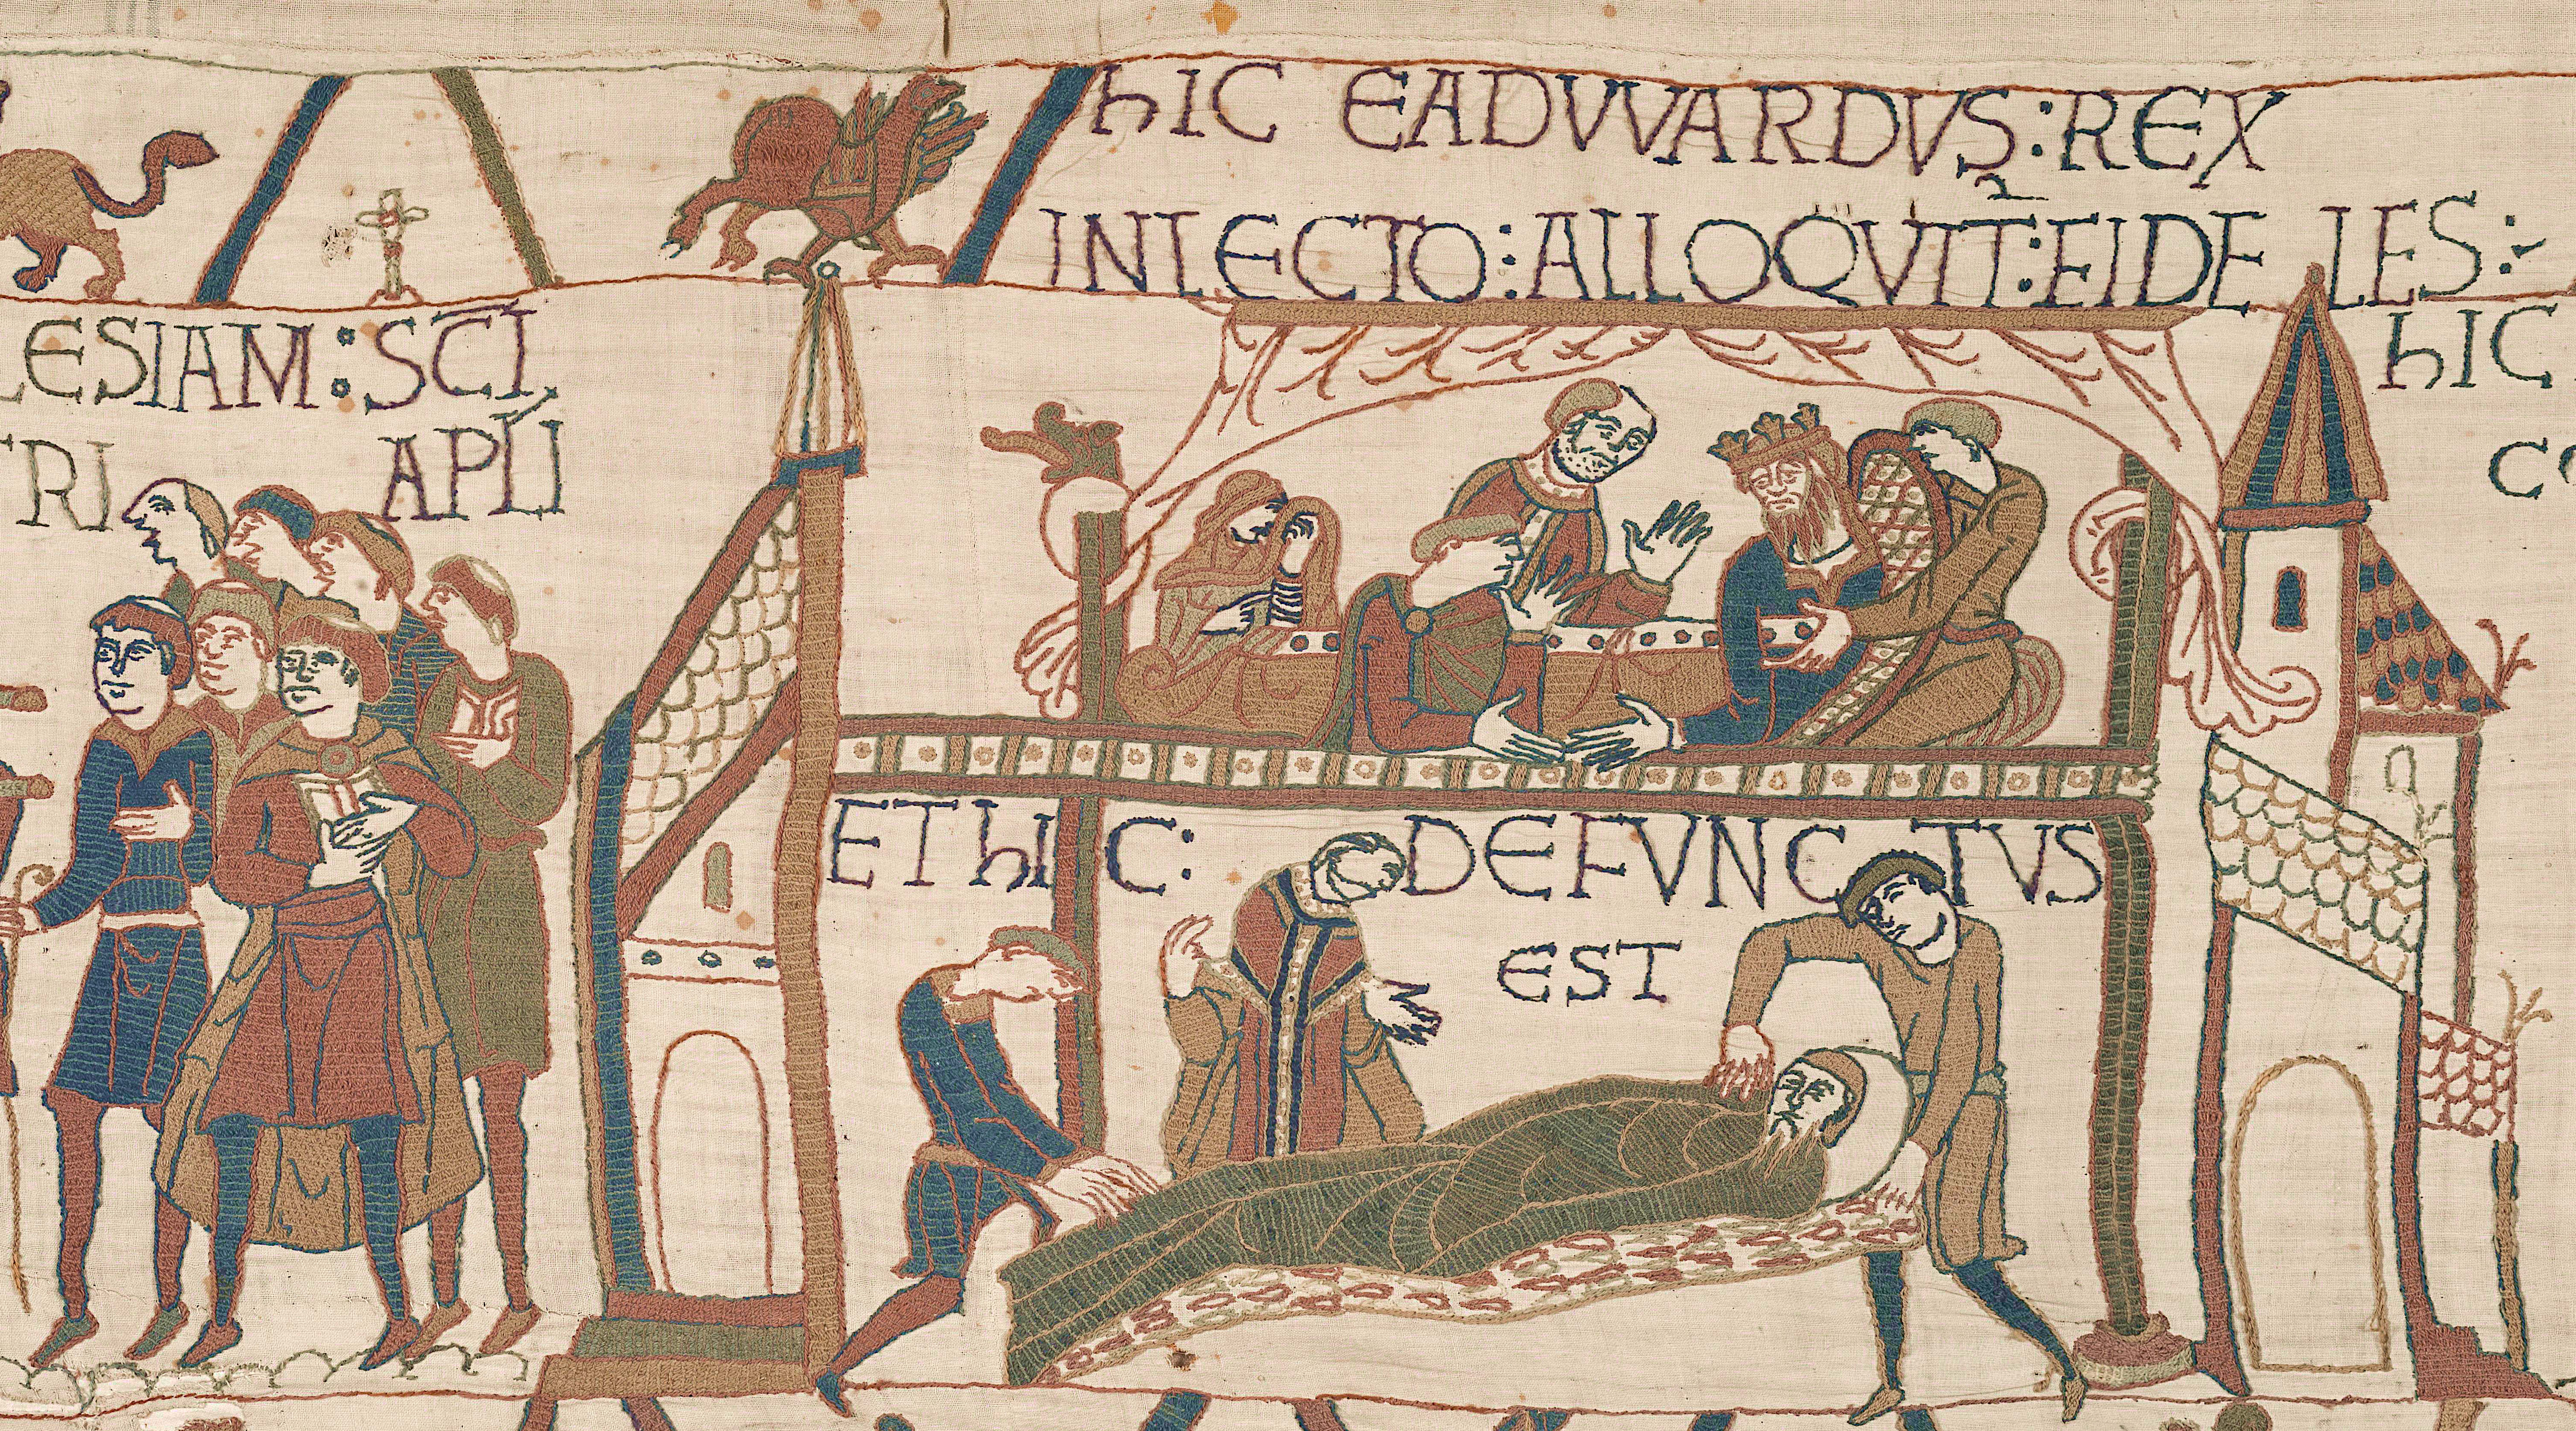 ESIAM : SCI
TRI APLI
hIC EADVVARDVS : REX
IN LECTO : ALLOQVIT : FIDELES :
ET hIC : DEFVNCTVS
EST
hIC